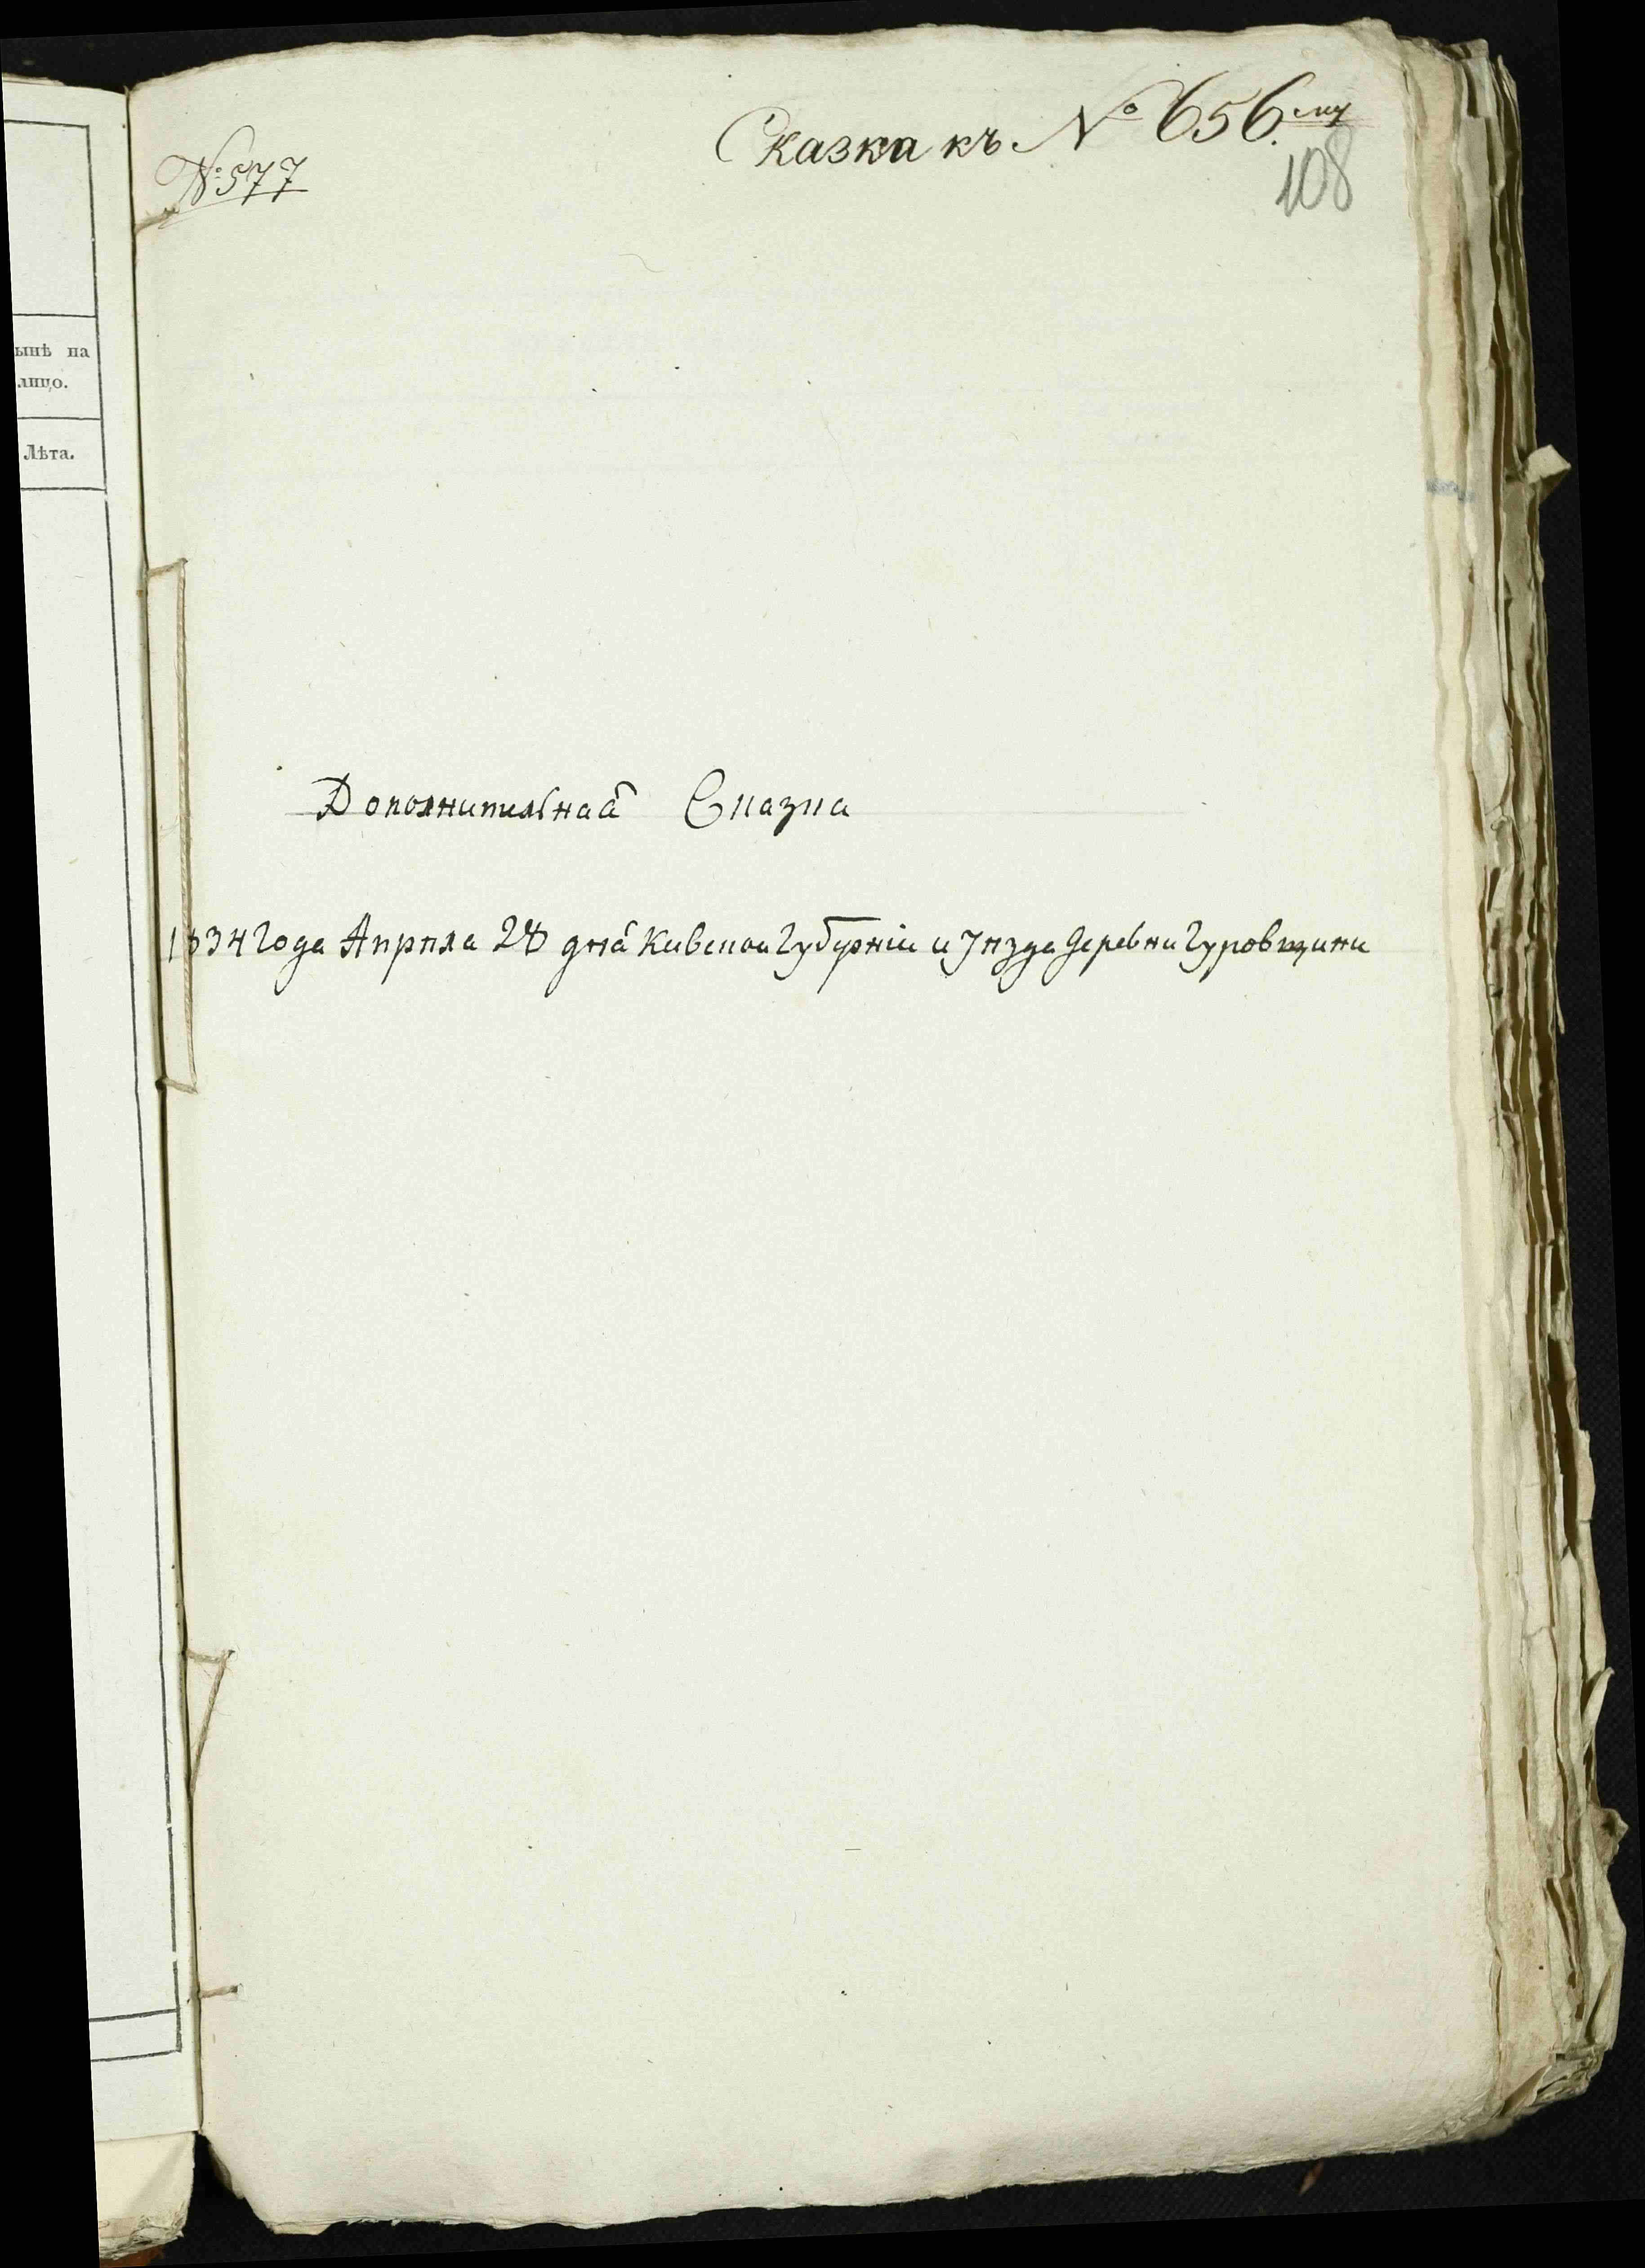 ынѣ на
лицо.
Лѣта.
№ 577
Сказка къ № 656.му
108
Дополнительная Сказка
1834 Года Апреля 28 дня Кивской Губернiи и Уезда деревни Гуровщини